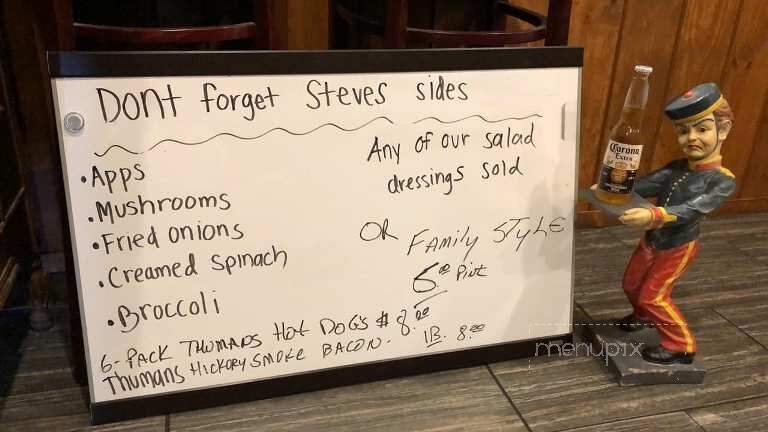 Dont forget Steves sides
• Apps
• Mushrooms
• Fried onions
• Creamed spinach
• Broccoli
Any of our salad
dressings sold
OR FAMILY STYLE
6.00 Pint
6-PACK THUMANS HOT DOGS $8.00
THUMANS HICKORY SMOKE BACON. 1B. 8.00
Corona
Extra
menupix